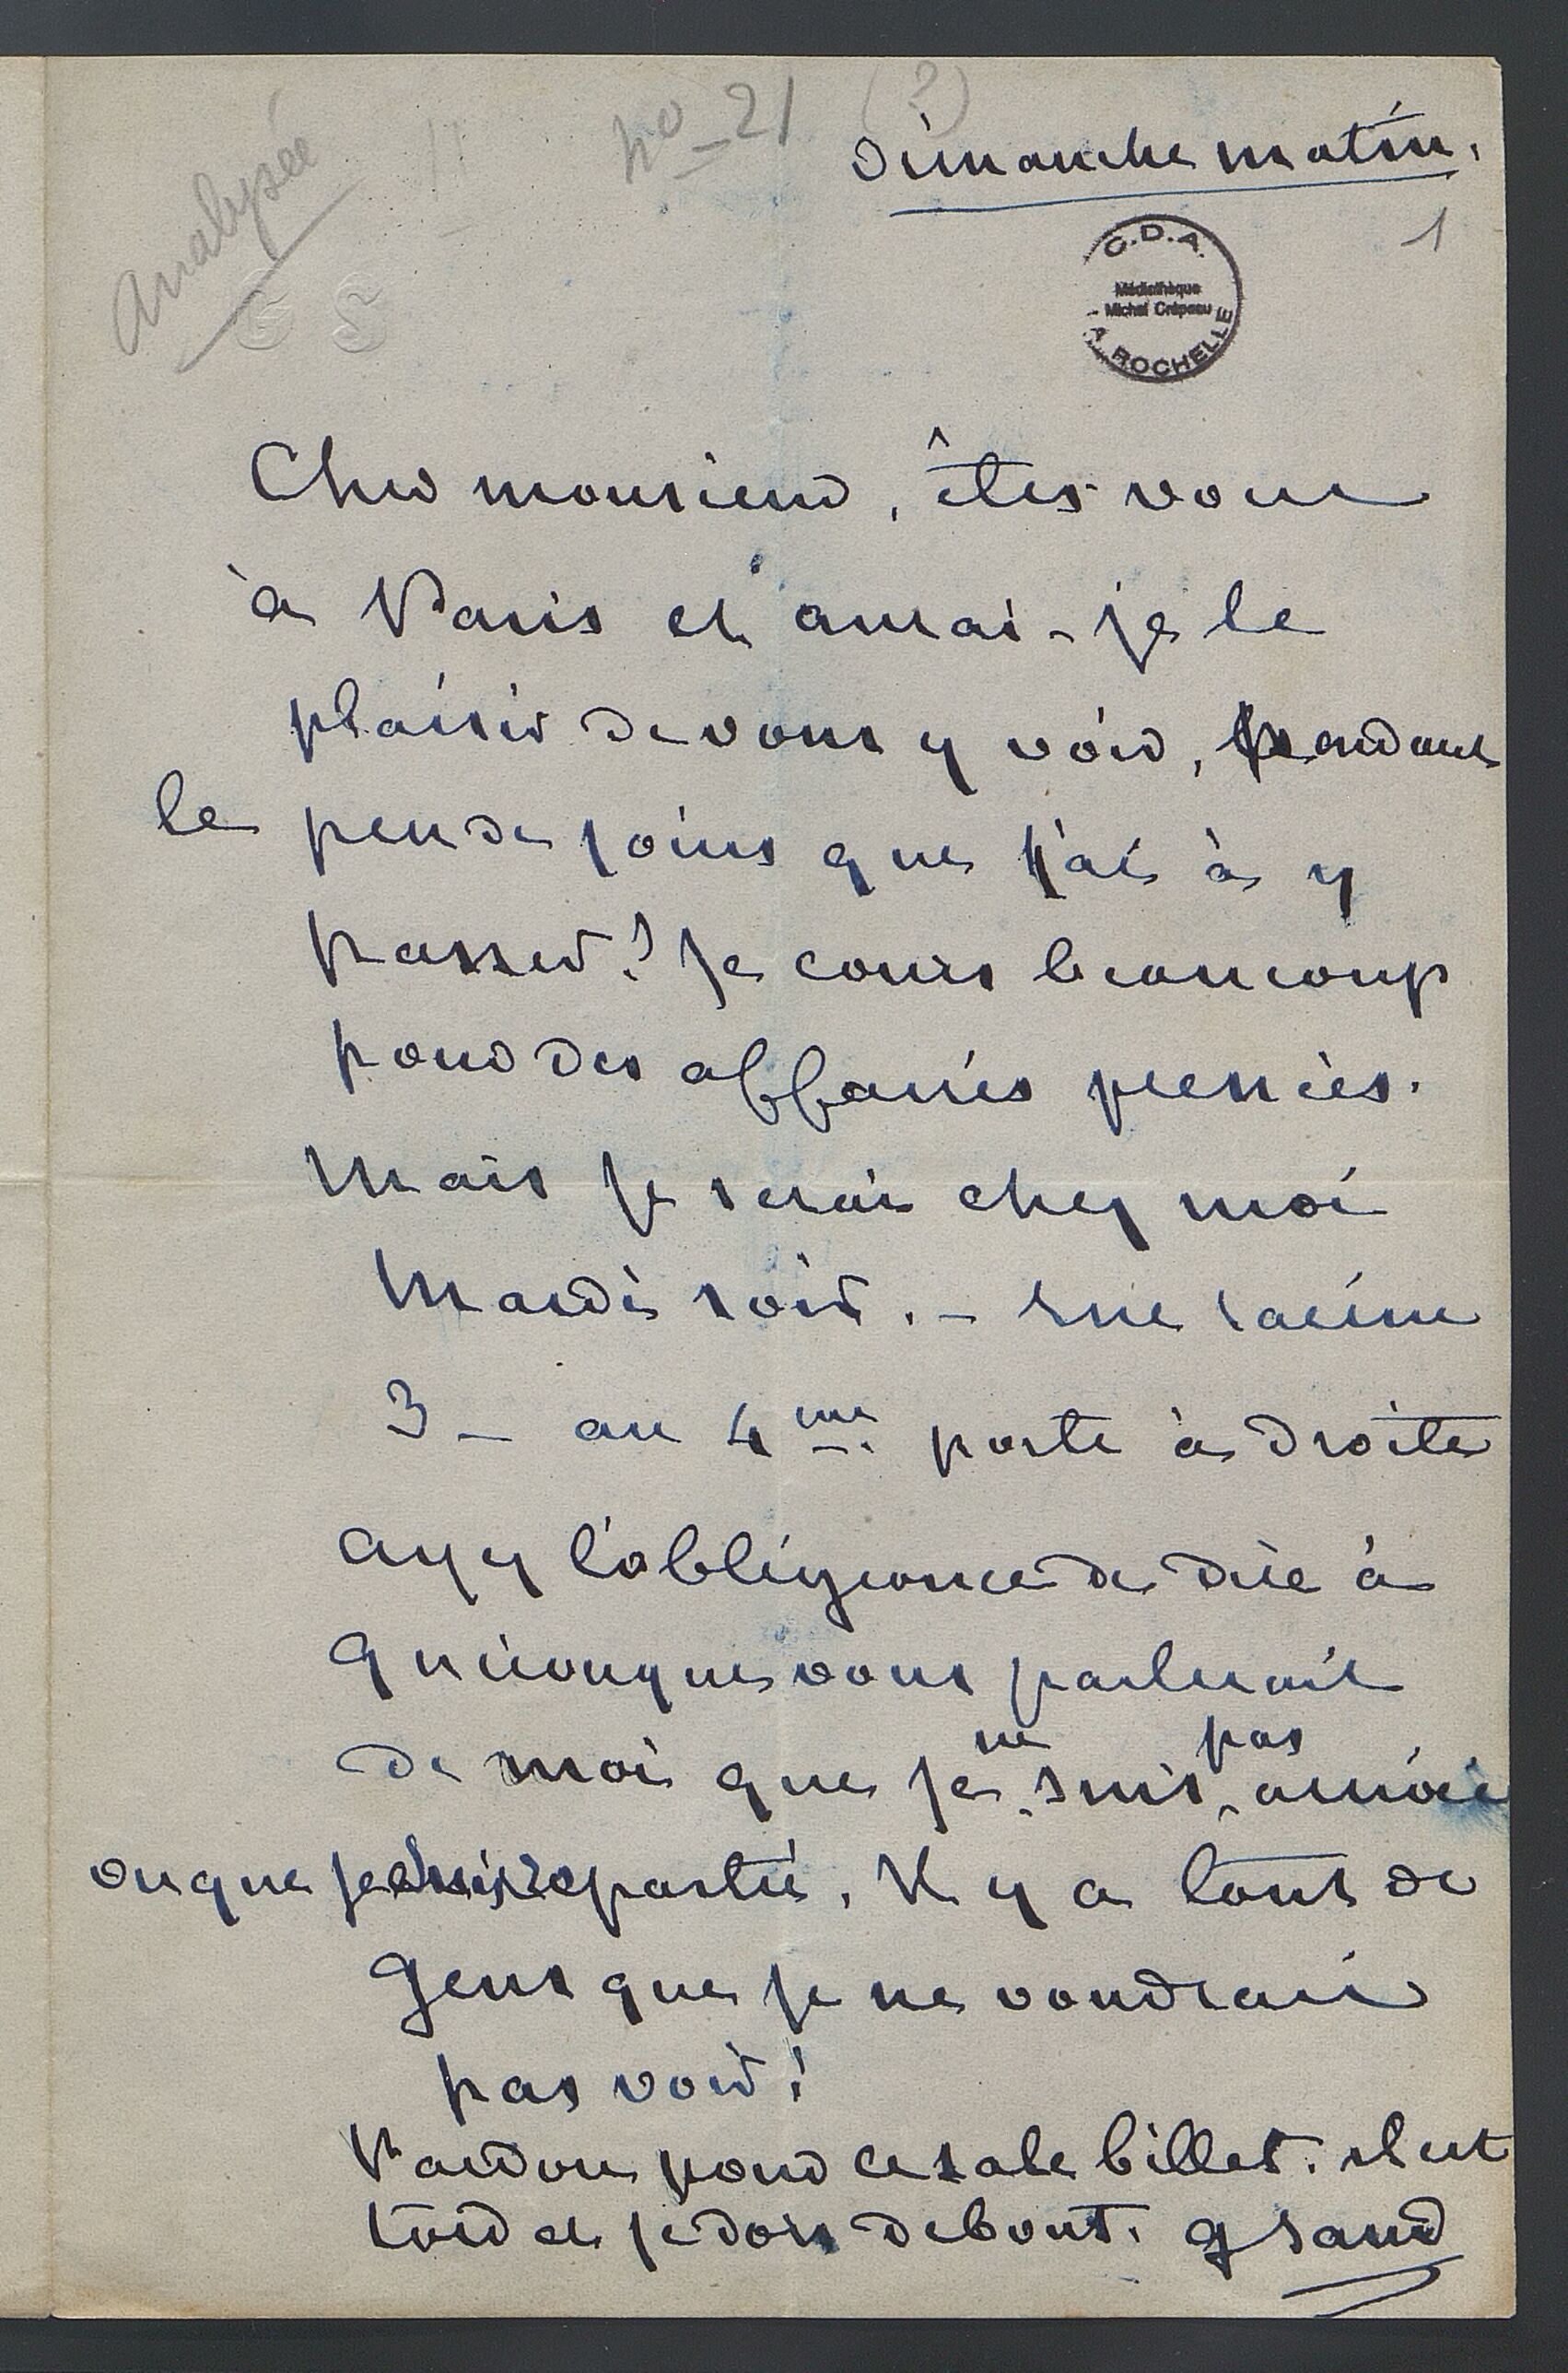 Analysée
no_21 (?)
Dimanche matin.
1
C.D.A.
Médiathèque
Michel Crépeau
LA ROCHELLE
G S
Cher monsieur, êtes-vous
à Paris et aurai-je le
plaisir de vous y voir, pendant
le peu de jours que j'ai à y
passer? Je cours beaucoup
pour des affaires pressées.
Mais je serai chez moi
Mardi soir. - rue racine
3 - au 4me. porte à droite
ayez l'obligeance de dire à
quiconque vous parlerait
de moi que je ne suis pas arrivée
ou que je suis repartie. Il y a tant de
gens que je ne voudrais
pas voir!
Pardon pour ce sale billet. il est
tard et je dors debout. G Sand